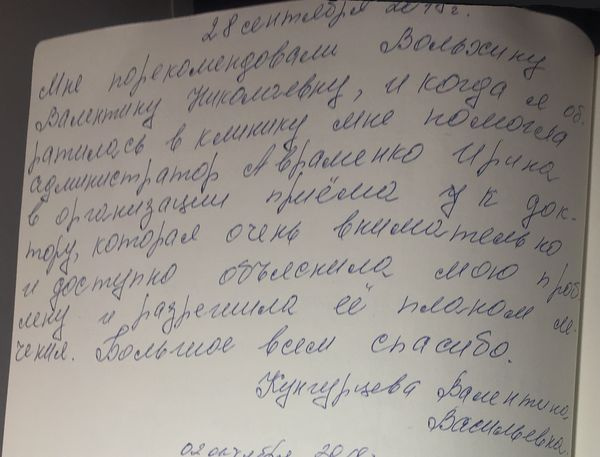 28 сентября 2019г.
Мне порекомендовали Вольхину
Валентину Николаевну, и когда я об-
ратилась в клинику мне помогла
администратор Авраменко Ирина
в организации приёма у к док-
тору, которая очень внимательно
и доступно объяснила мою проб
лему и разрешила её планом ле-
чения. Большое всем спасибо.
Кунгурцева Валентина
Васильевна.
02 октября